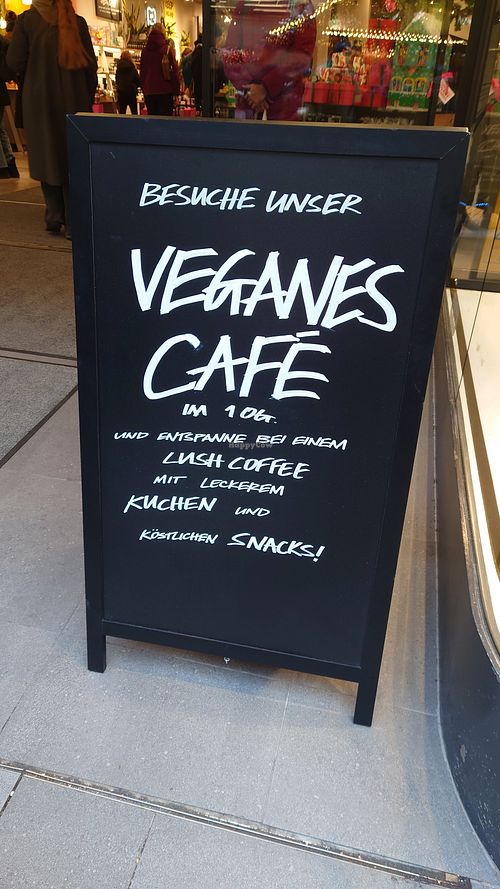 BESUCHE UNSER
VEGANES
CAFÉ
IM 1 OG.
UND ENTSPANNE BEI EINEM
LUSH COFFEE
MIT LECKEREM
KUCHEN UND
KÖSTLICHEN SNACKS!
happycow